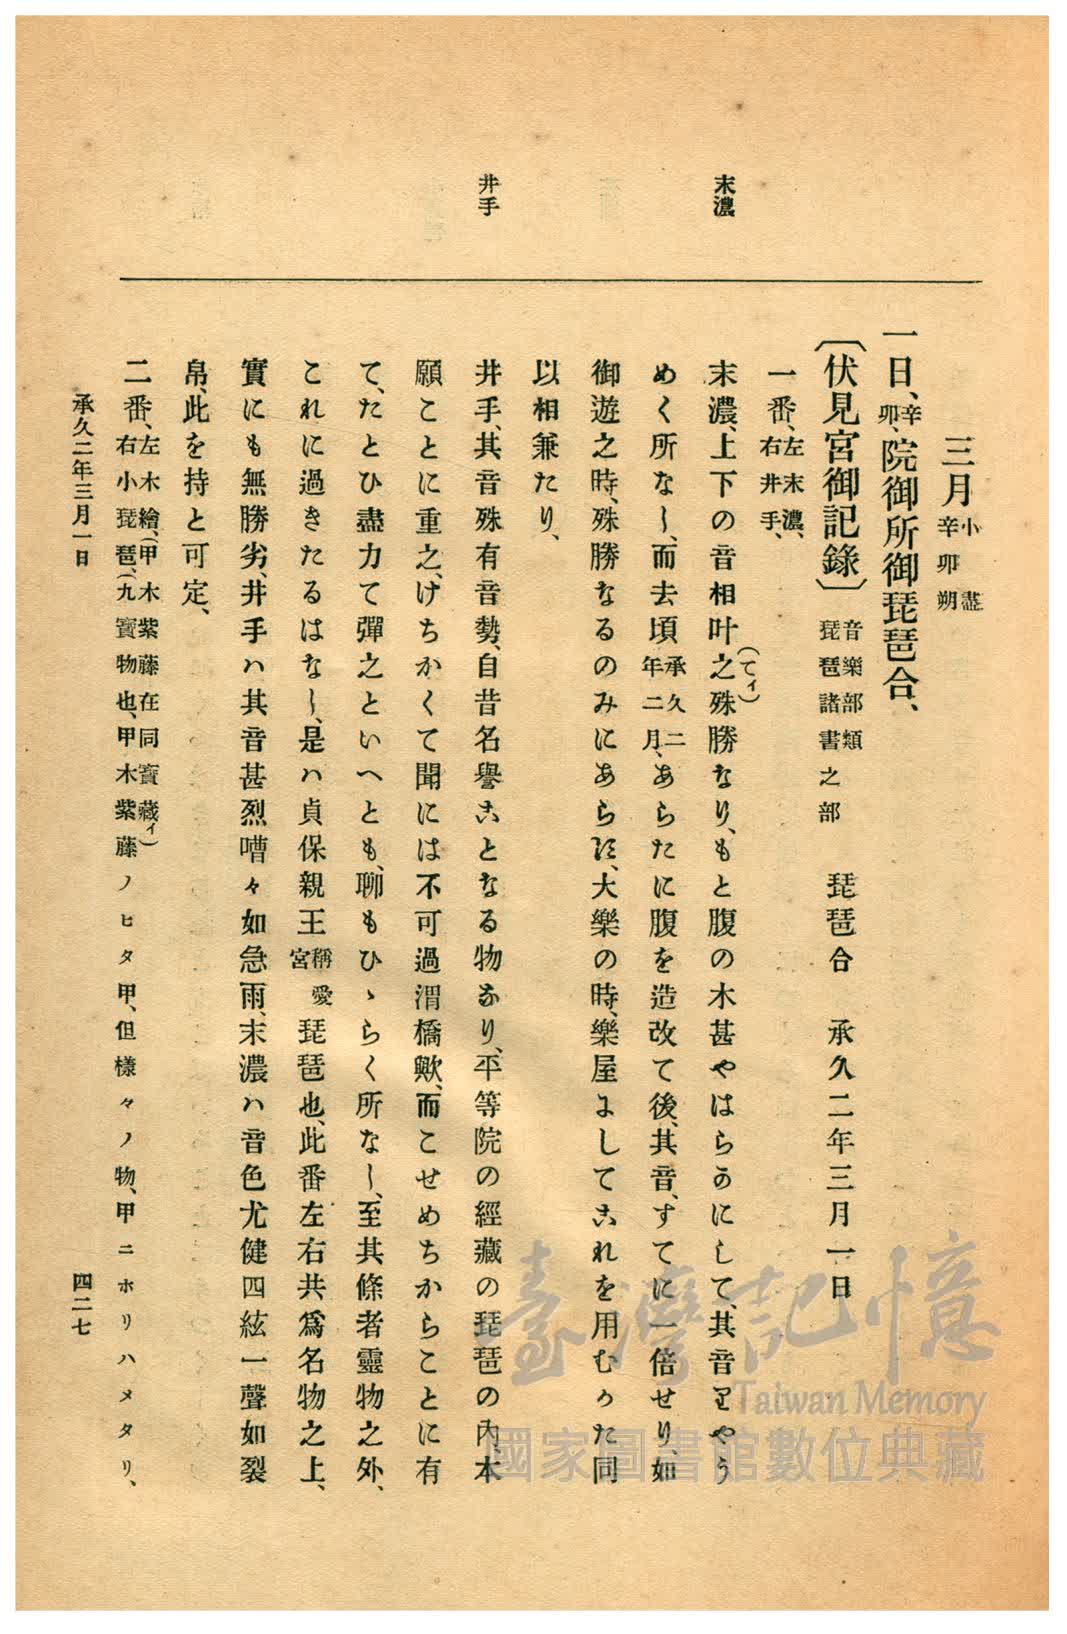 三月小盡辛卯朔
一日、辛卯、院御所御琵琶合、
〔伏見宮御記錄〕音樂部類琵琶諸書之部 琵琶合 承久二年三月一日
一番、左末濃、右井手、
末濃、上下の音相叶之(てィ)殊勝なり、もと腹の木甚やはらかにして、其音
めく所なし、而去頃承久二年二月、あらたに腹を造改て後、其音、すてに一倍せり、如
御遊之時、殊勝なるのみにあらす、大樂の時、樂屋にしてこれを用むかた同
以相兼たり、
井手、其音殊有音勢、自昔名譽ことなる物なり、平等院の經藏の琵琶の內、本
願ことに重之、けちかくて聞には不可過渭橋歟、而こせめちからことに有
て、たとひ盡力て彈之といへとも、聊もひゝらく所なし、至其條者靈物之外、
これに過きたるはなし、是ハ貞保親王稱愛宮琵琶也、此番左右共爲名物之上、
實にも無勝劣、井手ハ其音甚烈嘈々如急雨、末濃ハ音色尤健四絃一聲如裂
帛、此を持と可定、
二番、左木繪、(甲木紫藤在同寶藏ィ)右小琵琶、(九寶物也、甲木紫藤ノヒタ甲、但樣々ノ物、甲ニホリハメタリ、
末濃
井手
承久二年三月一日
四二七
臺灣記憶
Taiwan Memory
國家圖書館數位典藏